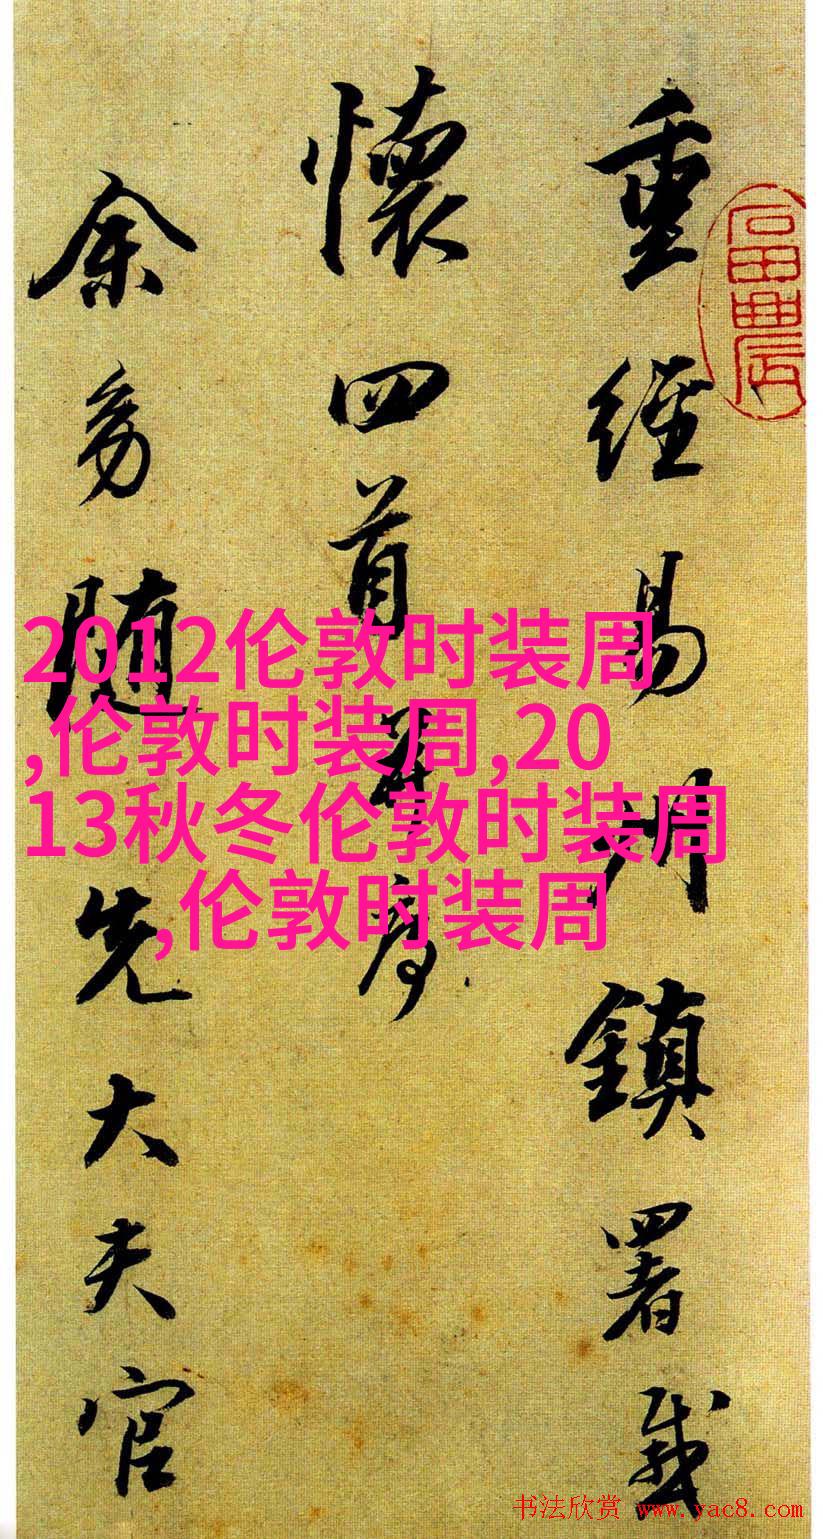 重經易州鎮署感
懷四首并序
余幼隨先大夫官
2012伦敦时装周
,伦敦时装周,20
13秋冬伦敦时装周
,伦敦时装周
书法欣赏 www.yac8.com